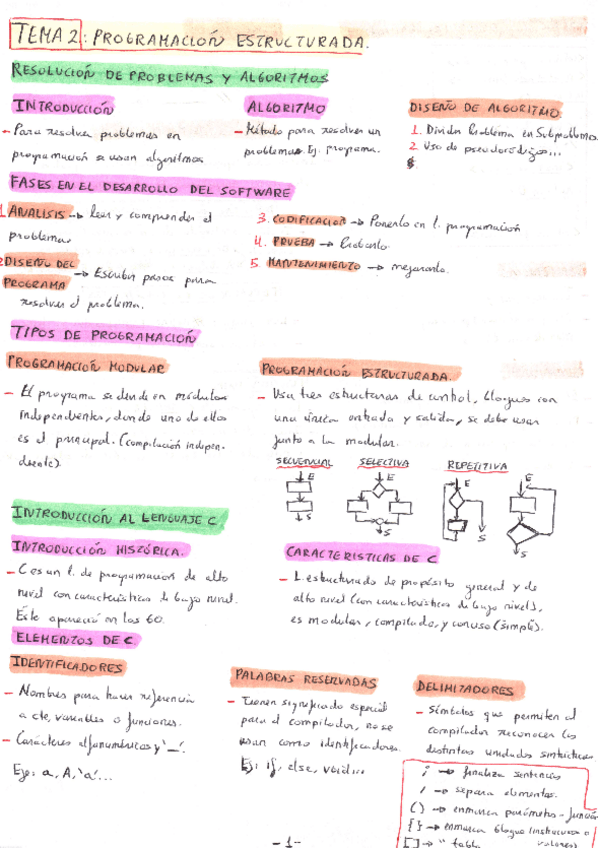 TEMA 2: PROGRAMACIÓN ESTRUCTURADA.
RESOLUCIÓN DE PROBLEMAS Y ALGORITMOS
INTRODUCCIÓN
- Para resolver problemas en
programación se usan algoritmos
ALGORITMO
- Método para resolver un
problema. Ej. programa.
DISEÑO DE ALGORITMO
1. Dividir Problema en Subproblemas
2. Uso de pseudocódigos...
FASES EN EL DESARROLLO DEL SOFTWARE
1. ANALISIS → leer y comprender el
problema.
2. DISEÑO DEL
PROGRAMA → Escribir pasos para
resolver el problema.
3. CODIFICACIÓN → Ponerlo en l. programación
4. PRUEBA → Probarlo.
5. MANTENIMIENTO → mejorarlo.
TIPOS DE PROGRAMACIÓN
PROGRAMACIÓN MODULAR
- El programa se divide en módulos
independientes, donde uno de ellos
es el principal. (compilación indepen-
diente).
PROGRAMACIÓN ESTRUCTURADA.
- Usa tres estructuras de control, bloques con
una única entrada y salida, se debe usar
junto a la modular.
SECUENCIAL SELECTIVA REPETITIVA
E E E E
S S S S
INTRODUCCIÓN AL LENGUAJE C
INTRODUCCIÓN HISTÓRICA.
- C es un l. de programación de alto
nivel con características de bajo nivel.
Este apareció en los 60.
CARACTERISTICAS DE C
- L. estructurado de propósito general y de
alto nivel (con características de bajo nivel),
es modular, compilado, y conciso (simple).
ELEMENTOS DE C
IDENTIFICADORES
- Nombres para hacer referencia
a cte, variables o funciones.
- Carácteres alfanuméricos y '_'.
Ejs: a, A, 'a'...
PALABRAS RESERVADAS
- Tienen significado especial
para el compilador, no se
usan como identificadores.
Ej: if, else, void...
DELIMITADORES
- Símbolos que permiten al
compilador reconocer las
distintas unidades sintácticas
; → finaliza sentencias
, → separa elementos.
( ) → enmarca parámetros - función
{ } → enmarca bloque (instrucciones o
valores)
[ ] → " tabla
- 1 -